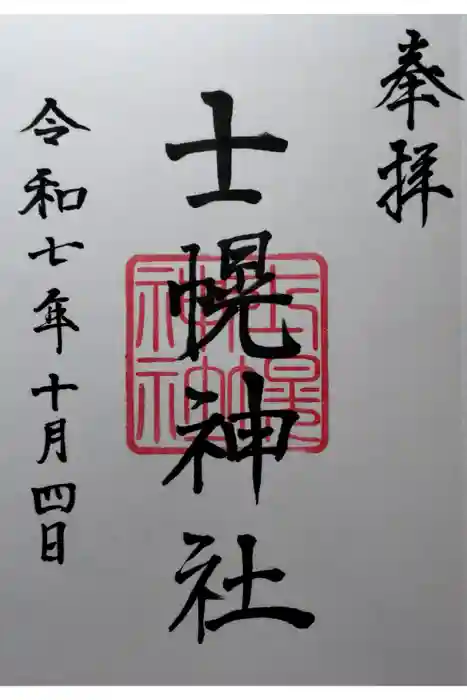 奉拝
士幌神社
士幌神社
令和七年十月四日